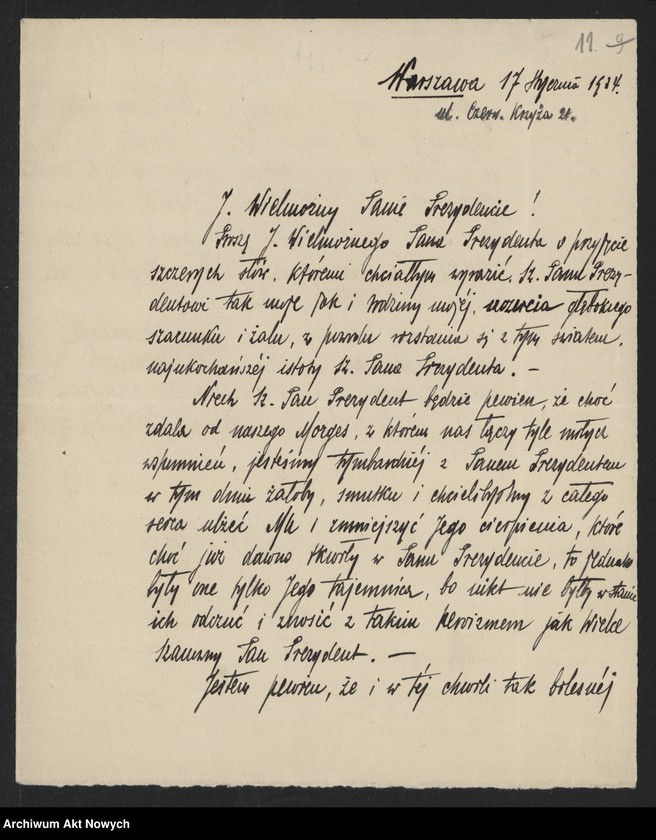 11. 9
Warszawa 17 stycznia 1934.
ul. Czerw. Krzyża 21.
J. Wielmożny Panie Prezydencie !
Proszę J. Wielmożnego Pana Prezydenta o przyjęcie
szczerych słów, któremi chciałbym wyrazić, Sz. Panu Prezy-
dentowi tak moje jak i rodziny mojéj, uczucia głębokiego
szacunku i żalu, z powodu rozstania się z tym światem,
najukochańszéj istoty Sz. Pana Prezydenta. –
Niech Sz. Pan Prezydent będzie pewien, że choć
zdala od naszego Morges, z którem nas łączy tyle miłych
wspomnień, jesteśmy tymbardziéj z Panem Prezydentem
w tym dniu żałoby, smutku i chcielibyśmy z całego
serca ulżeć Mu i zmniejszyć Jego cierpienia, które
choć już dawno tkwiły w Panu Prezydencie, to jednak
były one tylko Jego tajemnicą, bo nikt nie byłby w stanie
ich odczuć i znosić z takim heroizmem jak Wielce
Szanowny Pan Prezydent. –
Jestem pewien, że i w téj chwili tak bolesnéj
Archiwum Akt Nowych